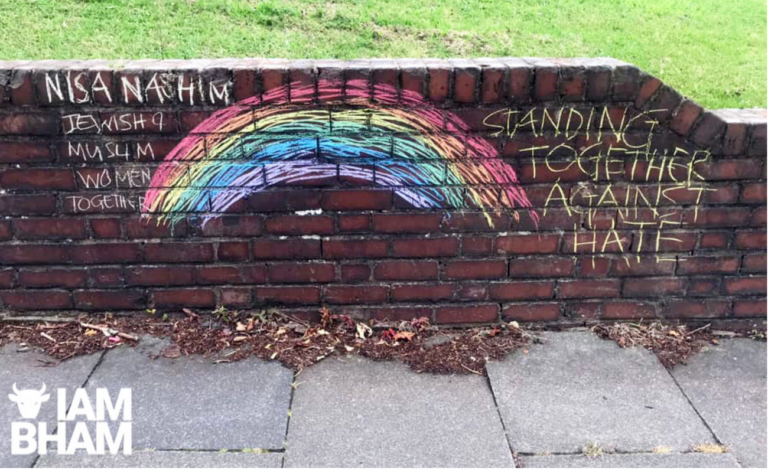 NISA NASHIM
JEWISH &
MUSLIM
WOMEN
TOGETHER
STANDING
TOGETHER
AGAINST
HATE
IAM
BHAM